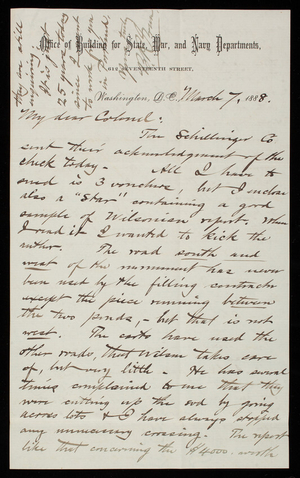 Office of Building for State, War, and Navy Departments,
SEVENTEENTH STREET,
Washington, D.C., March 7, 1888.
My dear Colonel:
The Schillinger Co
sent their acknowledgement of the
check today - All I have to
send is 3 vouchers, but I enclose
also a "Star" containing a good
sample of Wilsonian report. When
I read it I wanted to kick the
author. The road south and
west of the monument has never
been used by the filling contractor
except the piece running between
the two ponds, - but that is not
west. The carts have used the
other roads, that Wilson takes care
of, but very little - He has several
times complained to me that they
were cutting up the sod by going
across lots & I have always stopped
any unnecessary crossing. The report
like that concerning the $4000. worth
they are still
25 years
since
to work for you